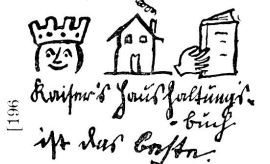 Kaiser's Haushaltungs-
buch
ist das beste.
[196